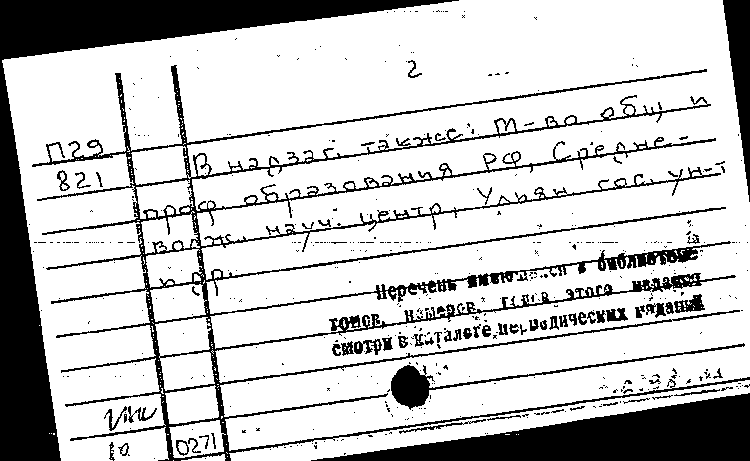 2
П29
821
В надзаг. также: М-во общ. и
проф. образования РФ, Средне-
волж. науч. центр, Ульян. гос. ун-т
и др.
Перечень имеющихся в библиотеке
томов, номеров, этого издания
смотри в каталоге периодических изданий
10
0271